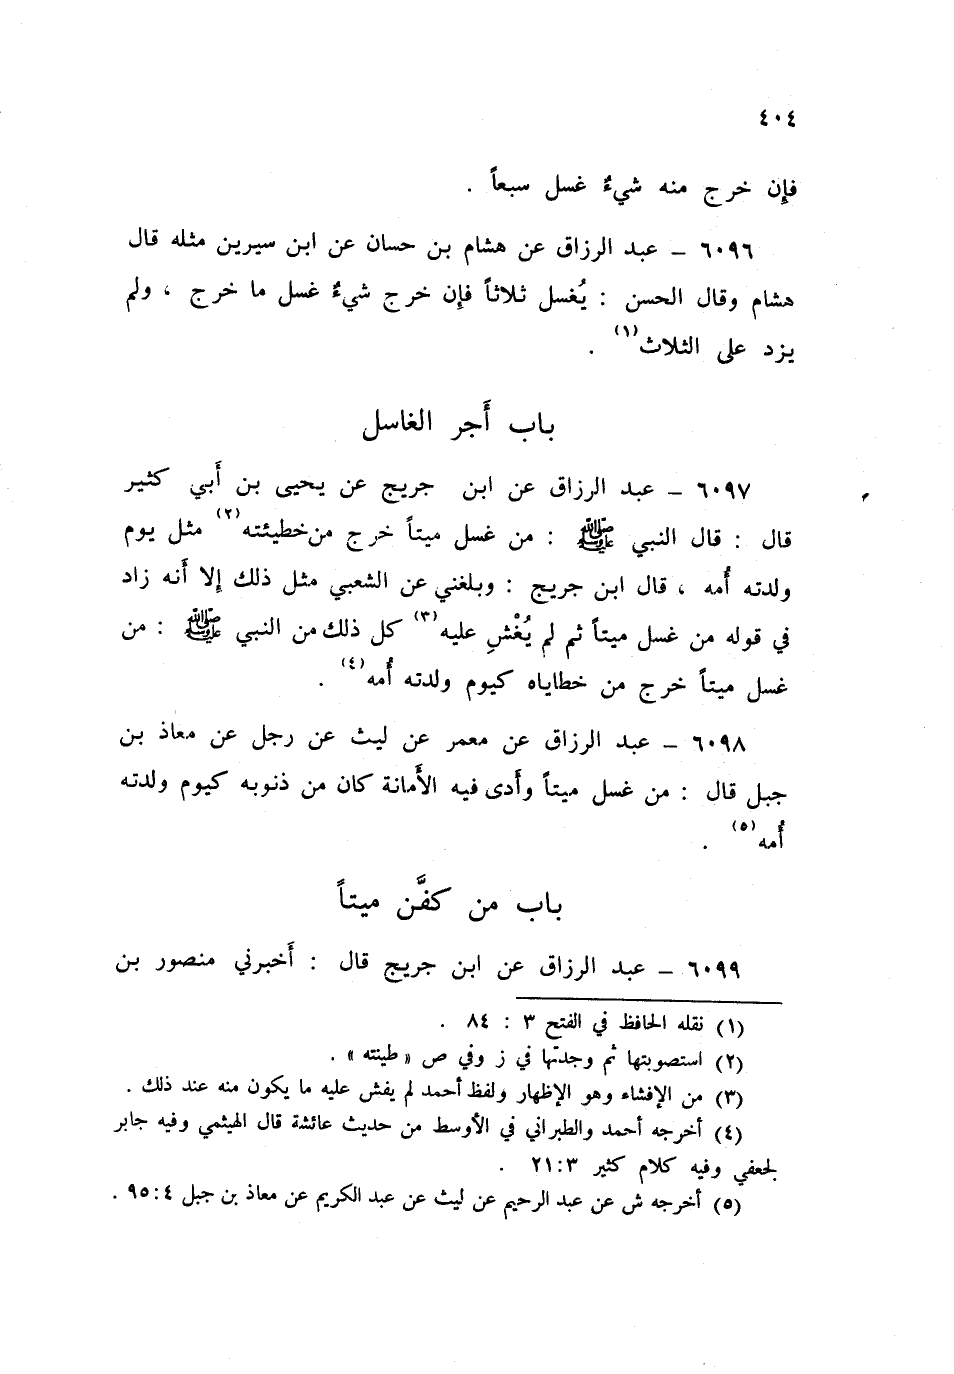 ٤٠٤
فإن خرج منه شيءٌ غسل سبعاً .
٦٠٩٦ – عبد الرزاق عن هشام بن حسان عن ابن سيرين مثله قال
هشام وقال الحسن : يُغسل ثلاثاً فإن خرج شيءٌ غسل ما خرج ، ولم
يزد على الثلاث(١) .
باب أَجر الغاسل
٦٠٩٧ – عبد الرزاق عن ابن جريج عن يحيى بن أَبي كثير
قال : قال النبي ﷺ : من غسل ميتاً خرج من خطيئته(٢) مثل يوم
ولدته أُمه ، قال ابن جريج : وبلغني عن الشعبي مثل ذلك إلا أَنه زاد
في قوله من غسل ميتاً ثم لم يُغْشِ عليه(٣) كل ذلك من النبي ﷺ : من
غسل ميتاً خرج من خطاياه كيوم ولدته أُمه(٤) .
٦٠٩٨ – عبد الرزاق عن معمر عن ليث عن رجل عن معاذ بن
جبل قال : من غسل ميتاً وأَدى فيه الأَمانة كان من ذنوبه كيوم ولدته
أُمه(٥) .
باب من كفَّن ميتاً
٦٠٩٩ – عبد الرزاق عن ابن جريج قال : أَخبرني منصور بن
(١) نقله الحافظ في الفتح ٣ : ٨٤ .
(٢) استصوبتها ثم وجدتها في ز وفي ص « طينته » .
(٣) من الإفشاء وهو الإظهار ولفظ أحمد لم يفش عليه ما يكون منه عند ذلك .
(٤) أخرجه أحمد والطبراني في الأوسط من حديث عائشة قال الهيثمي وفيه جابر
لجعفي وفيه كلام كثير ٢١:٣ .
(٥) أخرجه ش عن عبد الرحيم عن ليث عن عبد الكريم عن معاذ بن جبل ٩٥:٤ .